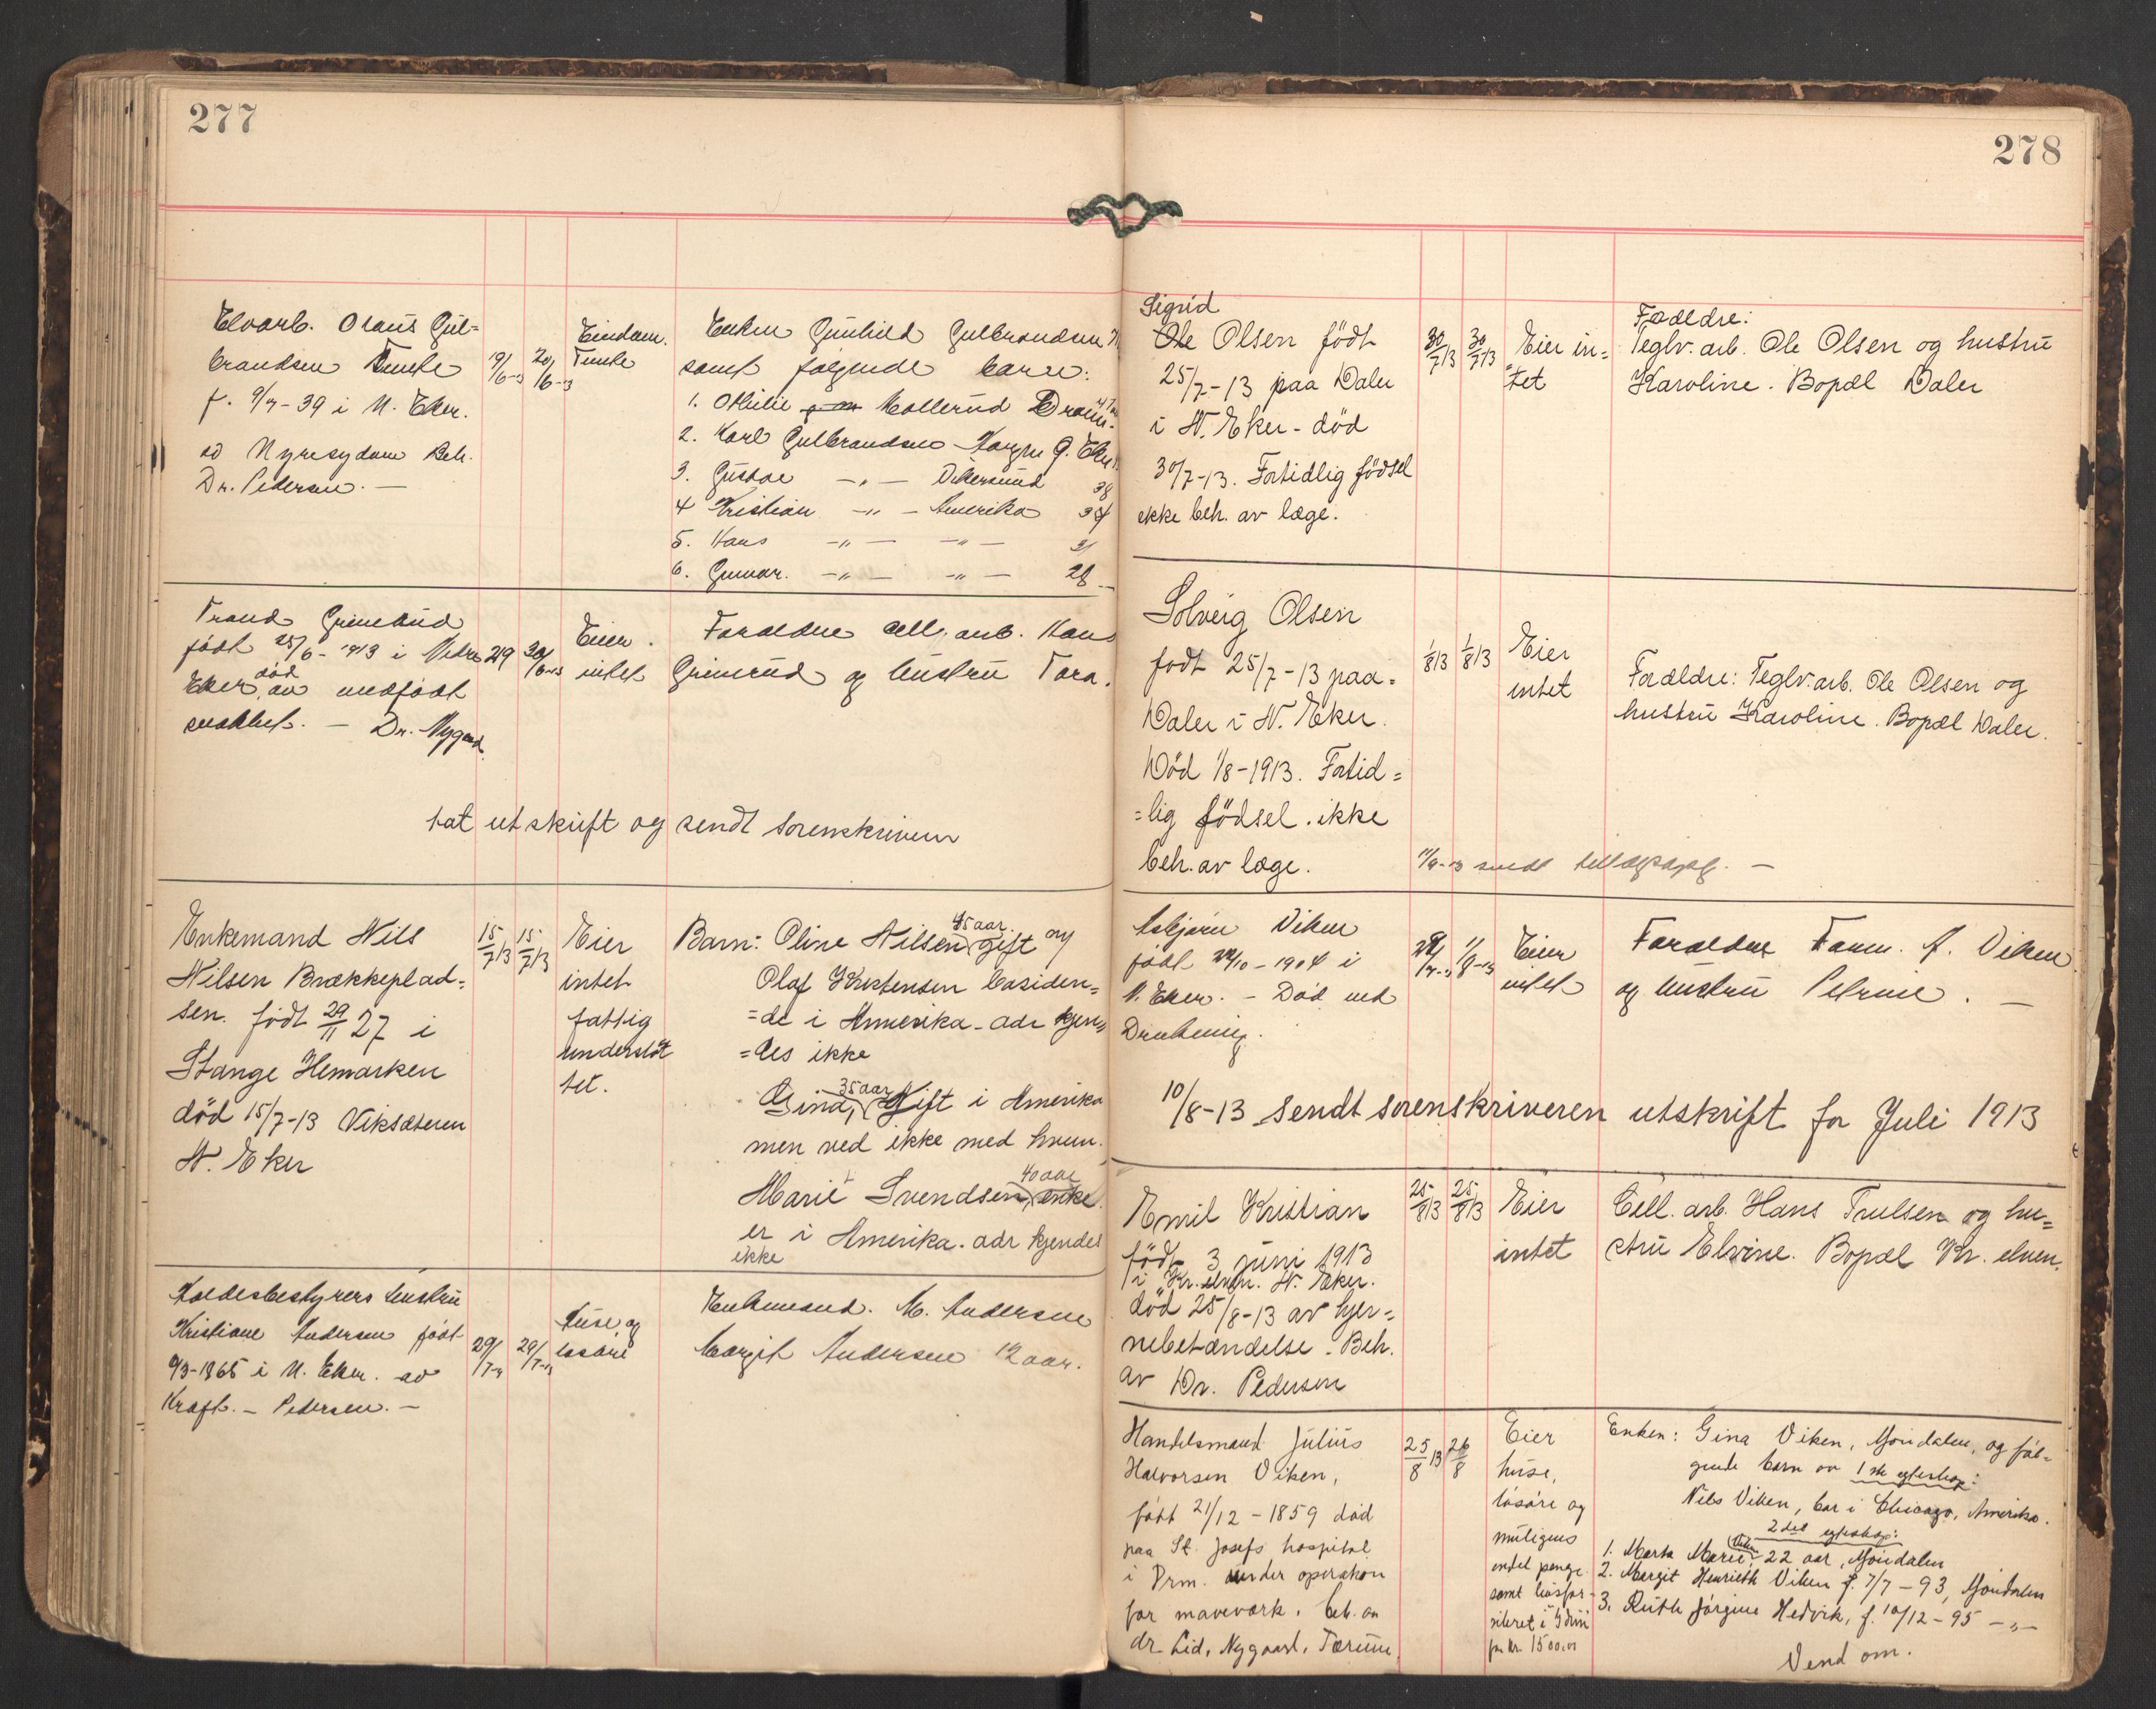 277
Elvarb. Olaus Gul=
brandsen Temte
f. 9/7-39 i N. Eker.
av Nyresydom Beh.
Dr. Pedersen. —
19/6-13
20/6-13
Eiendom.
Temte
Enken Gunhild Gulbrandsen
samt følgende barn:
1. Othilie Kollerud Dram.
2. Karl Gulbrandsen G. Eker
3. Gustav —„— Vikersund 38
4 Kristian —„— Amerika 34
5. Hans —„— —„— 31
6. Gunnar. —„— —„— 28
Trond Grimerud
født 25/6-1913 i Nedre
Eker død av medfødt
svakhet. — Dr. Nygaard
29
30/6-13
Eier
intet
Foraeldre cell. arb. Hans
Grimerud og hustru Tora.
tat utskrift og sendt sorenskriveren
Enkemand Nils
Nilsen Brækkeplad=
sen. født 29/11 27 i
Stange Hemarken
død 15/7-13 Viksæteren
N. Eker
15/7 13
15/7 13
Eier
intet
fattig
understøt
tet.
Barn: Oline Nilsen, 45 aar gift og
Olaf Kristensen bosiden=
=de i Amerika - adr kjen=
=des ikke
Gina, 35 aar Gift i Amerika
men ved ikke med hvem.
Marie Svendsen, 40 aar enke.
er i Amerika. adr kjendes
ikke
hustru
Kristiane Andersen født
9/3-1865 i N. Eker. av
Kræft. — Pedersen. —
29/7-13
29/7-13
huse og
løsøre
Enkemand. M. Andersen
Margit Andersen 12 aar.
278
Sigrid
Ole Olsen født
25/7-13 paa Daler
i N. Eker - død
30/7-13. Fortidlig fødsel
ikke beh. av læge.
30/7 13
30/7 13
Eier in=
tet
Forældre:
Teglv. arb. Ole Olsen og hustru
Karoline. Bopæl Daler
Solveig Olsen
født 25/7-13 paa
Daler i N. Eker.
Død 1/8-1913. Fortid=
=lig fødsel. ikke
beh. av læge.
1/8 13
1/8 13
Eier
intet
Forældre: Teglv. arb. Ole Olsen og
hustru Karoline. Bopæl Daler.
sendt
Asbjørn Viken
født 22/10-1904 i
N. Eker. — Død ved
Drukning.
29/7-13
1/8-13
Eier
intet
Foraeldre A. Viken
og hustru Petrine. —
10/8-13 sendt sorenskriveren utskrift for Juli 1913
Emil Kristian
født 3 juni 1913
i Kr. elven. N. Eker.
død 25/8-13 av hjer=
nebetændelse. Beh.
av Dr. Pedersen
25/8 13
25/8 13
Eier
intet
Cell. arb. Hans Trulsen og hu=
stru Elvine. Bopæl Kr. elven.
Handelsmand Julius
Halvorsen Viken,
født 21/12-1859 død
paa St. Josefs hospital
i Drm. under operation
for maveværk. beh. av
dr. Lid, Nygaard, Torum.
25/8 13
26/8
Eier
huse,
løsøre og
muligens
endel penge
samt livsfor-
sikret i Idun
for kr. 1500.00
Enken: Gina Viken, Mjøndalen, og føl=
gende barn av 1ste egteskap:
Nils Viken, bor i Chicago, Amerika.
2det egteskap:
1. Marta Marie Viken 22 aar, Mjøndalen
2. Margit Henriette Viken f. 7/7-93, Mjøndalen
3. Ruth Jørgine Hedvik, f. 10/12-95 —„—
Vend om.